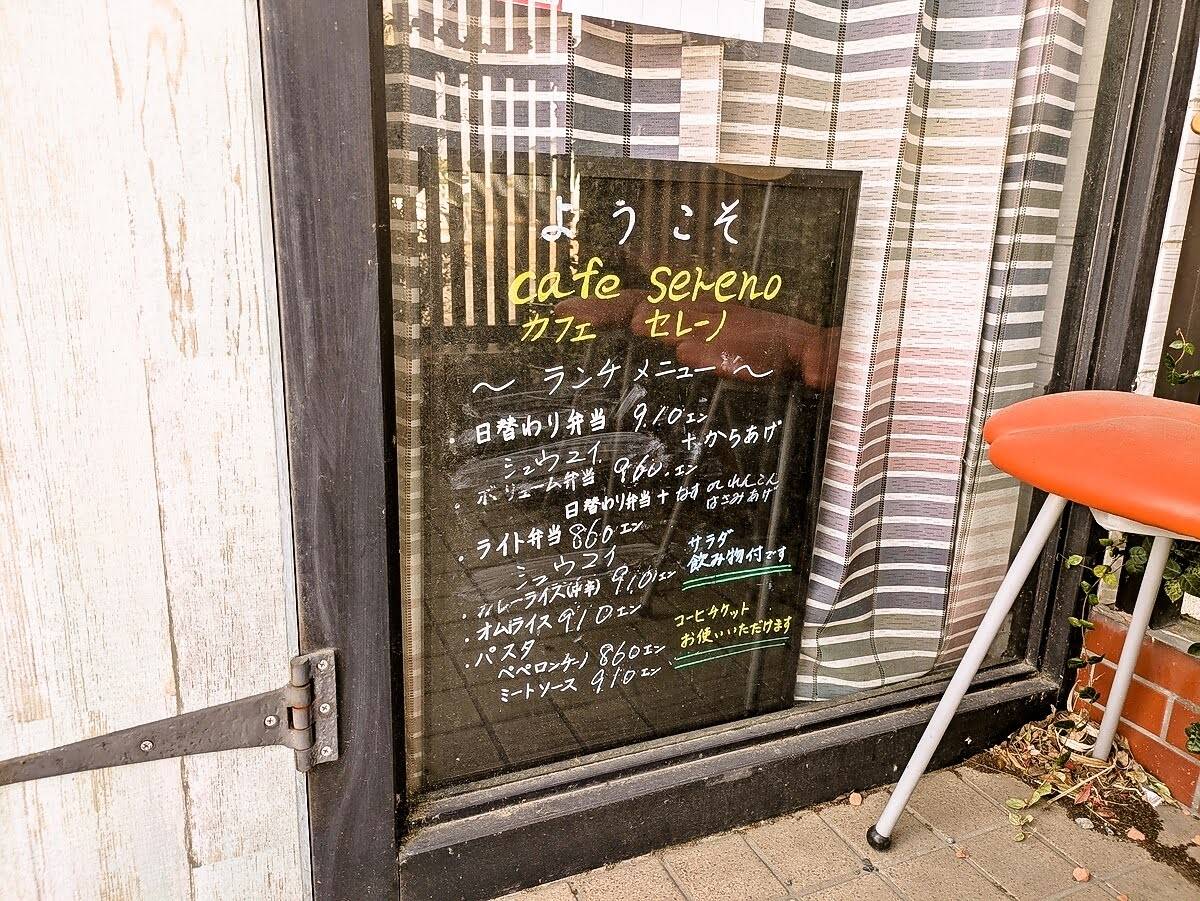 ようこそ
cafe sereno
カフェ セレーノ
～ ランチメニュー ～
・日替わり弁当 910エン
シュウユイ +からあげ
・ボリューム弁当 960エン
日替わり弁当+なす or れんこん
はさみあげ
・ライト弁当 860エン
シュウユイ
サラダ
飲み物付です
・カレーライス 910エン
・オムライス 910エン
・パスタ
ペペロンチーノ 860エン
ミートソース 910エン
コーヒチケット
お使いいただけます